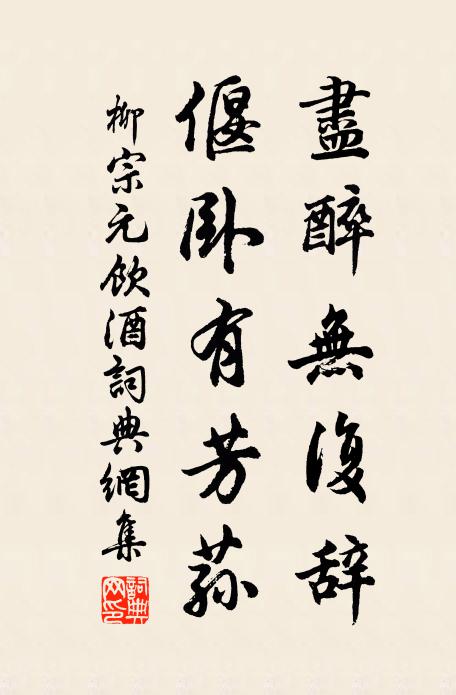 盡醉無復辞
偃卧有芳蓀
柳宗元飲酒詞典網集
詞典网印